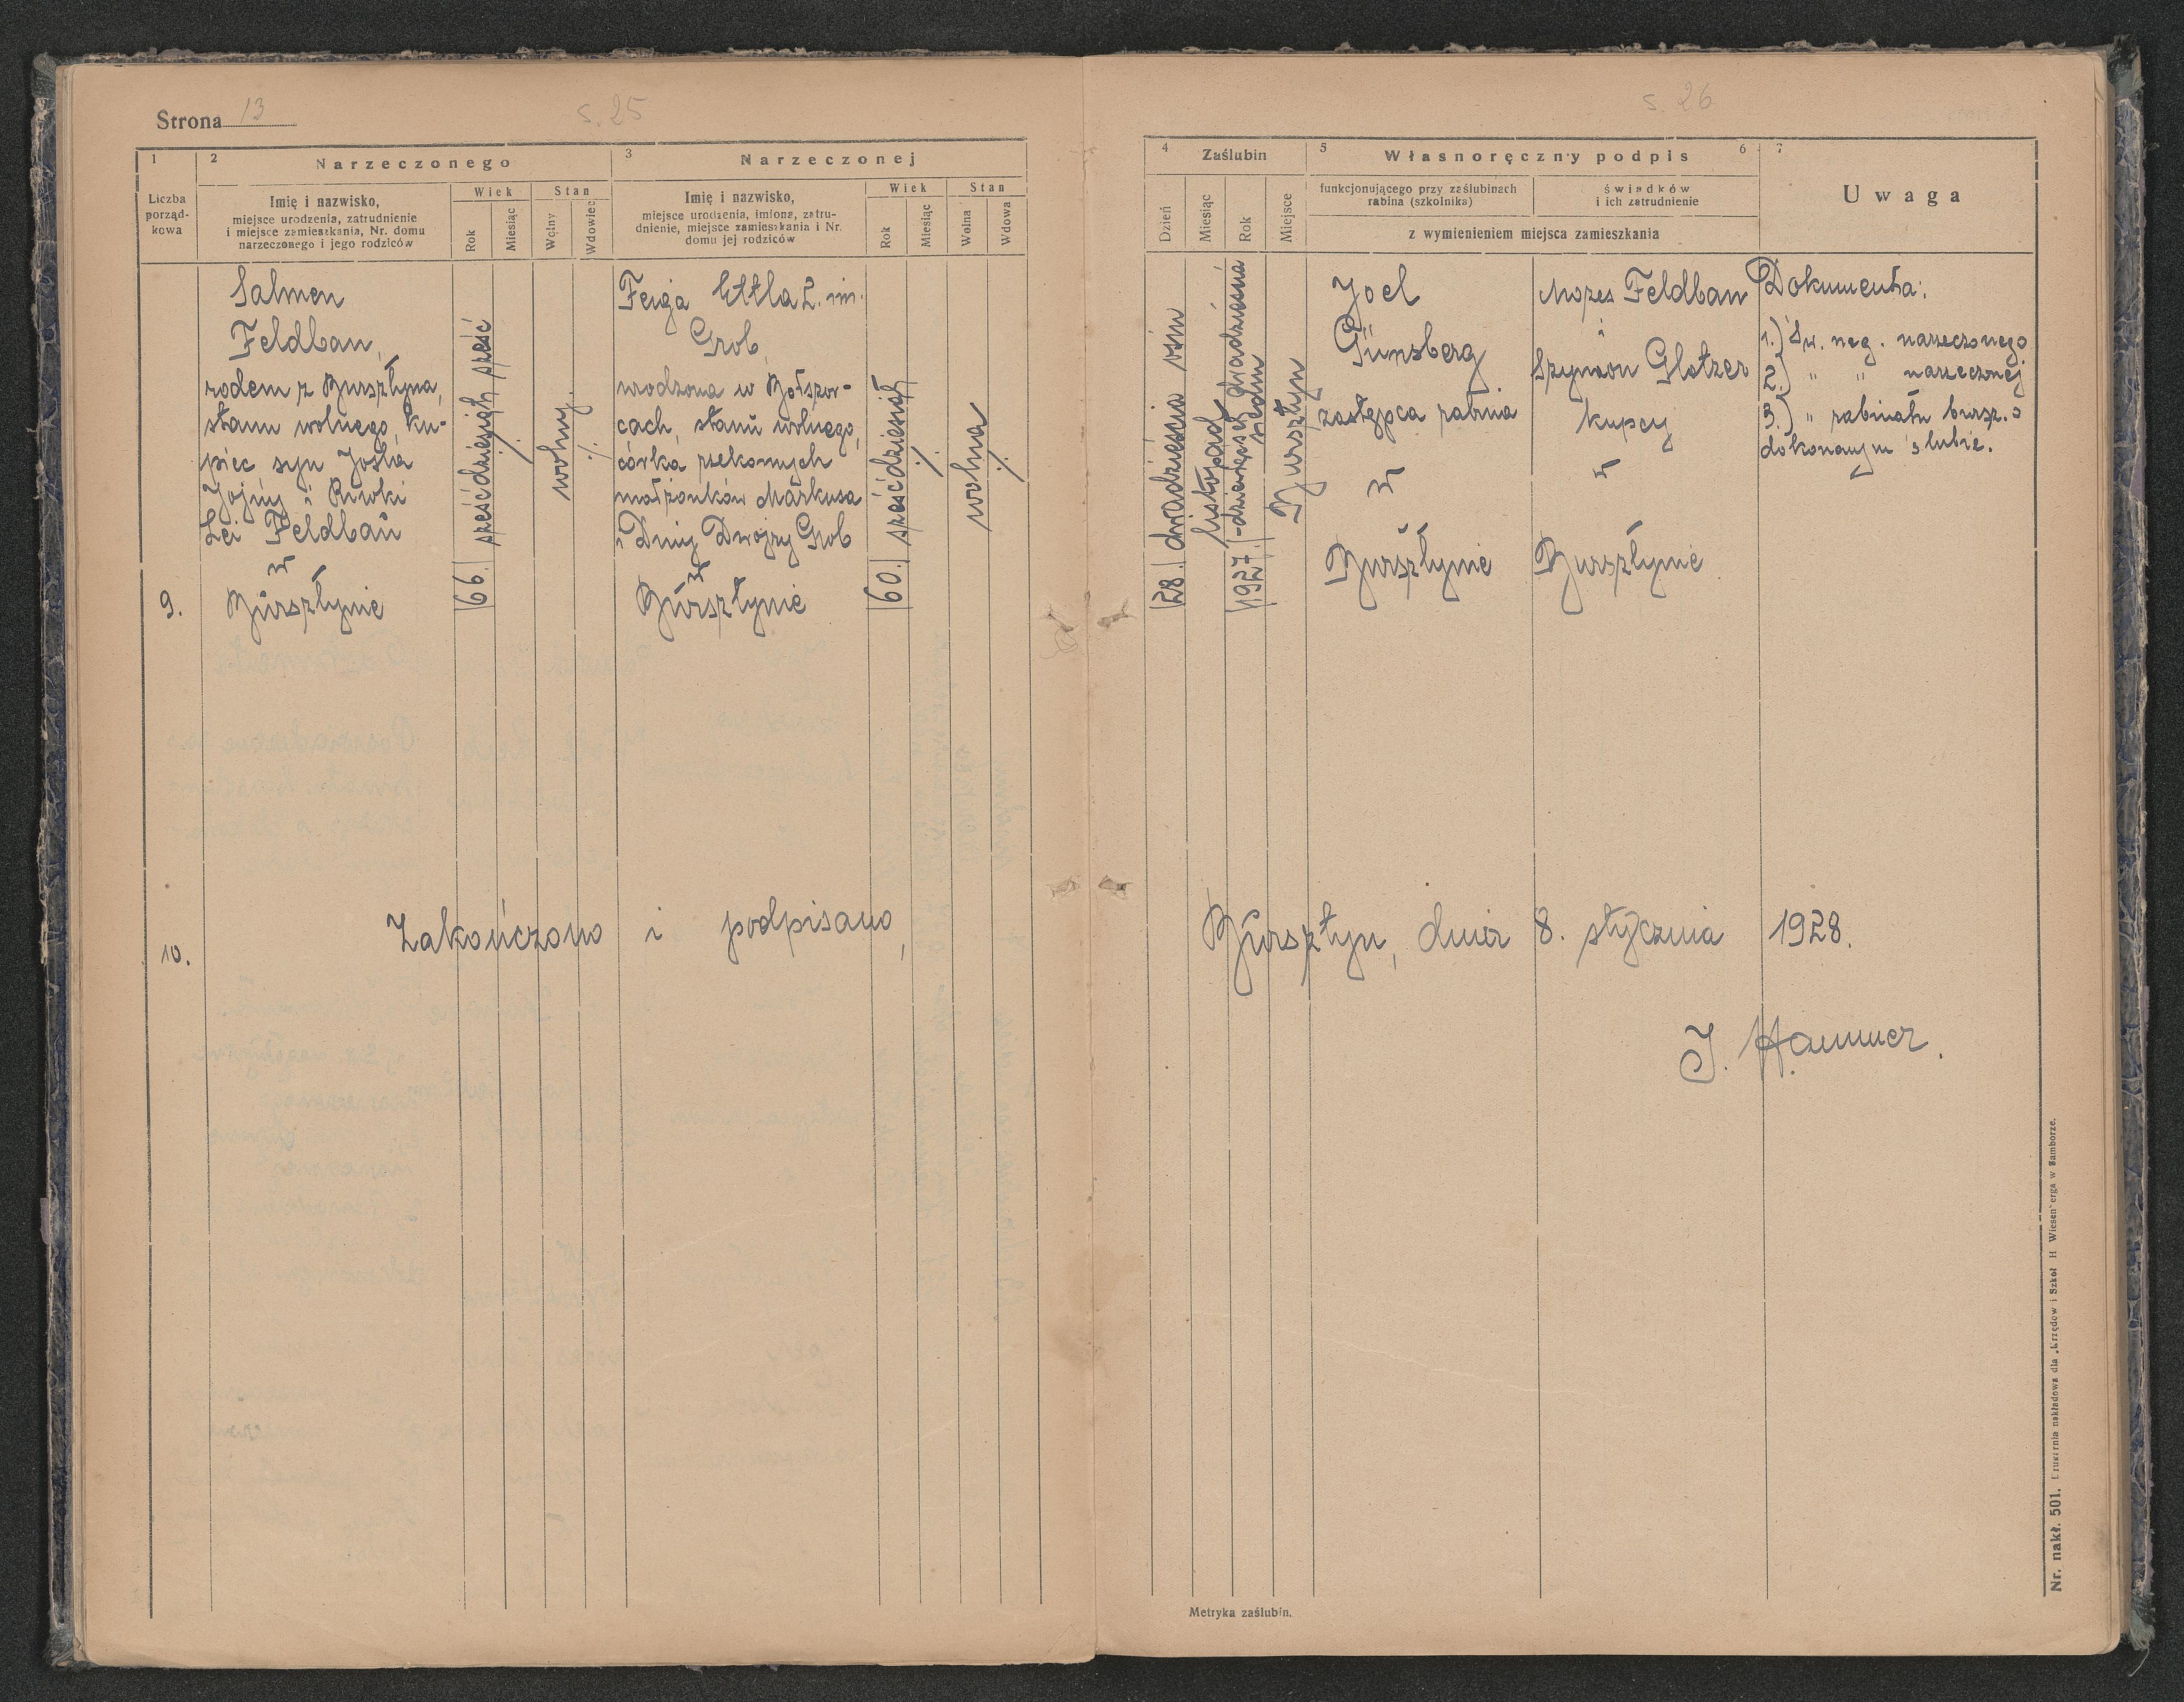 Strona 13
s. 25
1
2
Narzeczonego
3
Narzeczonej
Liczba
porząd-
kowa
Imię i nazwisko,
miejsce urodzenia, zatrudnienie
i miejsce zamieszkania, Nr. domu
narzeczonego i jego rodziców
Wiek
Rok
Miesiąc
Stan
Wolny
Wdowiec
Imię i nazwisko,
miejsce urodzenia, imiona, zatru-
dnienie, miejsce zamieszkania i Nr.
domu jej rodziców
Wiek
Rok
Miesiąc
Stan
Wolna
Wdowa
9.
Salmen
Feldbau,
rodem z Bursztyna,
stanu wolnego, ku-
piec syn Josla
Jojny i Riwki
Lei Feldbau
w
Bursztynie
66. sześćdziesiąt sześć
wolny
Feiga Ettla 2. im.
Grob,
urodzona w Bołszow-
cach, stanu wolnego,
córka rzekomych
małżonków Markusa
i Dwojry Grob
w
Bursztynie
60. sześćdziesiąt
wolna
10.
Zakończono i podpisano,
s. 26
4
Zaślubin
5
Własnoręczny podpis
6
7
Dzień
Miesiąc
Rok
Miejsce
funkcjonującego przy zaślubinach
rabina (szkolnika)
świadków
i ich zatrudnienie
z wymienieniem miejsca zamieszkania
Uwaga
28. dwadzieścia ośm
listopad
1927 -dziewięćset dwadzieścia
siedm
Bursztyn
Joel
Günsberg
zastępca rabina
w
Bursztynie
Mozes Feldbau
i
Szymon Glotzer
kupcy
w
Bursztynie
Dokumenta:
1.) Św. neg. narzeczonego
2.) " " narzeczonej
3.) " rabinatu bursz. o
dokonanym ślubie.
Bursztyn, dnia 8. stycznia 1928.
J. Hammer.
Metryka zaślubin.
Nr. nakł. 501. Drukarnia nakładowa dla „Urzędów i Szkół H Wiesenberga w Samborze.